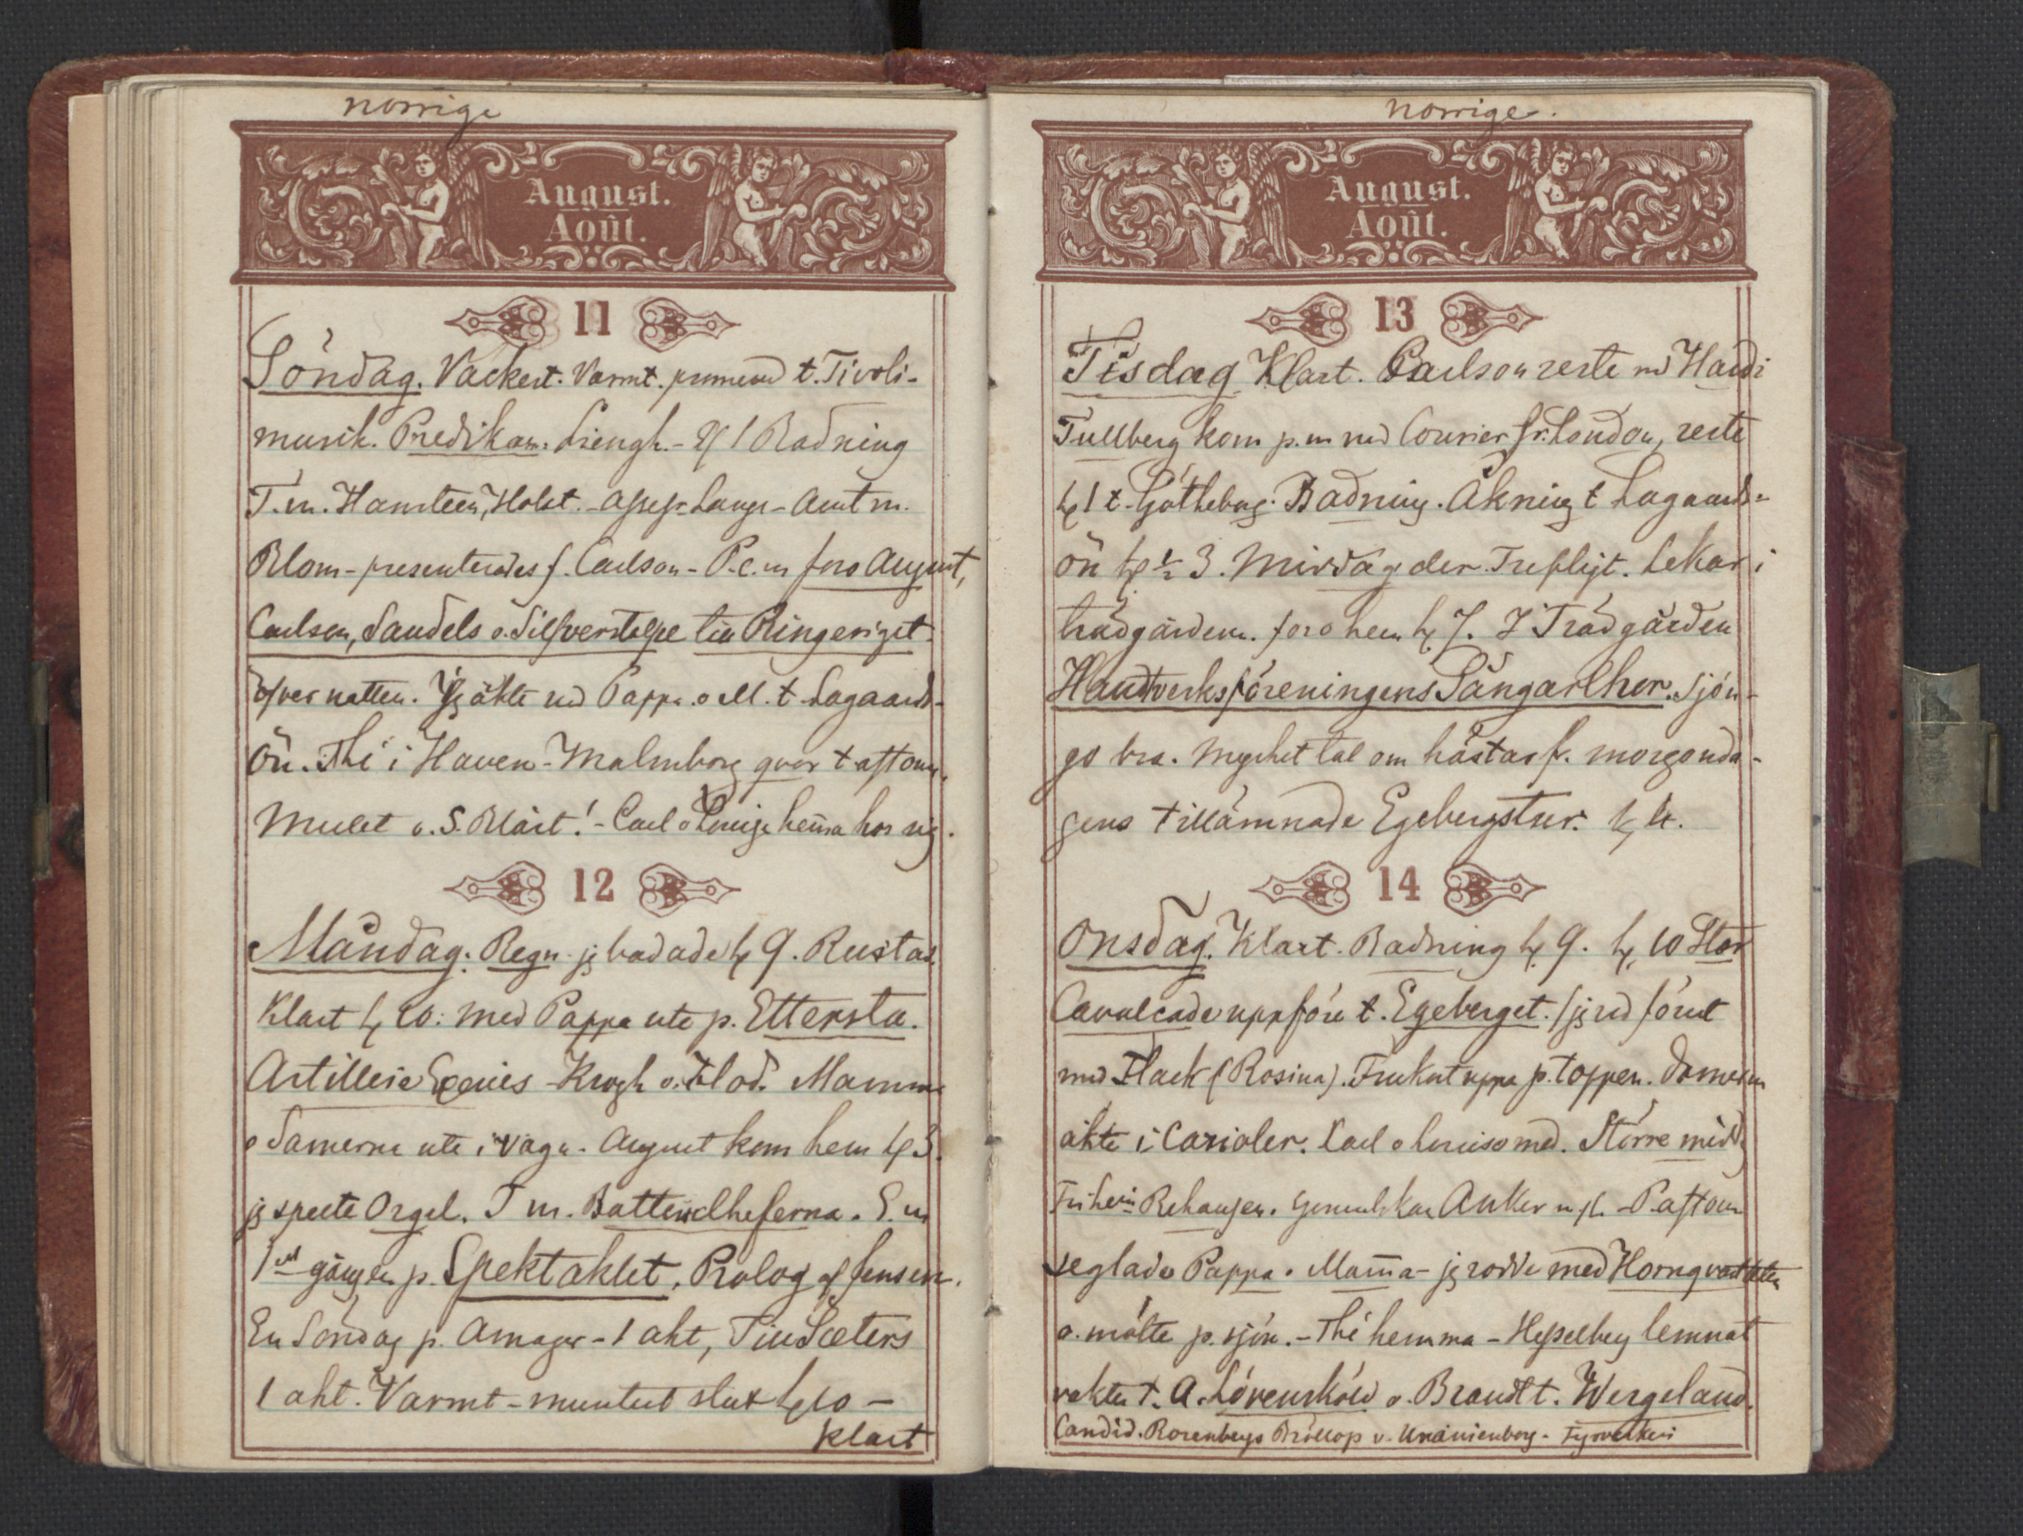 norrige
August.
Août.
11
Söndag. Vackert. Varmt. promenad t. Tivoli-
musik. Predikan. Liengh. - Kl 1 Badning
T. m. Hansteen, Holst. - Assess. Lange - Amtm.
Blom - presenterades f. Carlson - P.e.m foro August,
Carlson, Sandels o. Silfverstolpe till Ringeriget
öfver natten. Jg åkte md Pappa o M. t Lagaards-
ön. Thé i Haven - Malmborg qvar t aftonen.
Mulet o. S. Blåst! - Carl o Louise hemma hos sig.
12
Måndag. Regn. jg badade kl 9. Rustad.
Klart kl 10. med Pappa ute p. Ettersta.
Artilleri Exercis - Krogh o. Flod. Mamma
o Damerna ute i vagn. August kom hem kl 3.
jg spelte Orgel. T m. Battericheferna. E. m
1sta gången p. Spektaklet, Prolog af Jensen.
En Söndag p. Amager - 1 akt, Till Sæters
1 akt. Varmt - muntert slut kl 10 -
Klart
norrige.
August.
Août.
13
Tisdag Klart. Carlson reste md Hårdh
Tullberg kom p. m md Courier fr. London, reste
kl 1 t. Götheborg. Badning. Åkning t Lagaards-
ön kl ½ 3. Middag der. Trefligt. Lekar i
trädgården. foro hem kl 7. I Trädgården
Handtverksföreningens Sångarchor. Sjön-
go bra. Mycket tal om hästar f. morgonda-
gens tillämnade Egebergstur. kl 11.
14
Onsdag. Klart. Badning kl 9. kl 10 Stor
Cavalcade uppföre t. Egeberget. (jg red först
med Flack (Rosina). Frukost uppe p. toppen. Damerna
åkte i Carioler. Carl o Louise med. Större midd.
Friherrin Rehausen. Generalskan Anker m fl. - P. aftonen
seglade Pappa o Mamma - jg rodde med Hornqvart
o. mötte p. sjön. - Thé hemma - Hesselberg lemnat
vakten t. A. Lövenskiöld o. Brandt t. Wergeland.
Candid. Rosenbergs Bröllop v. Uranienborg - Fyrverkeri